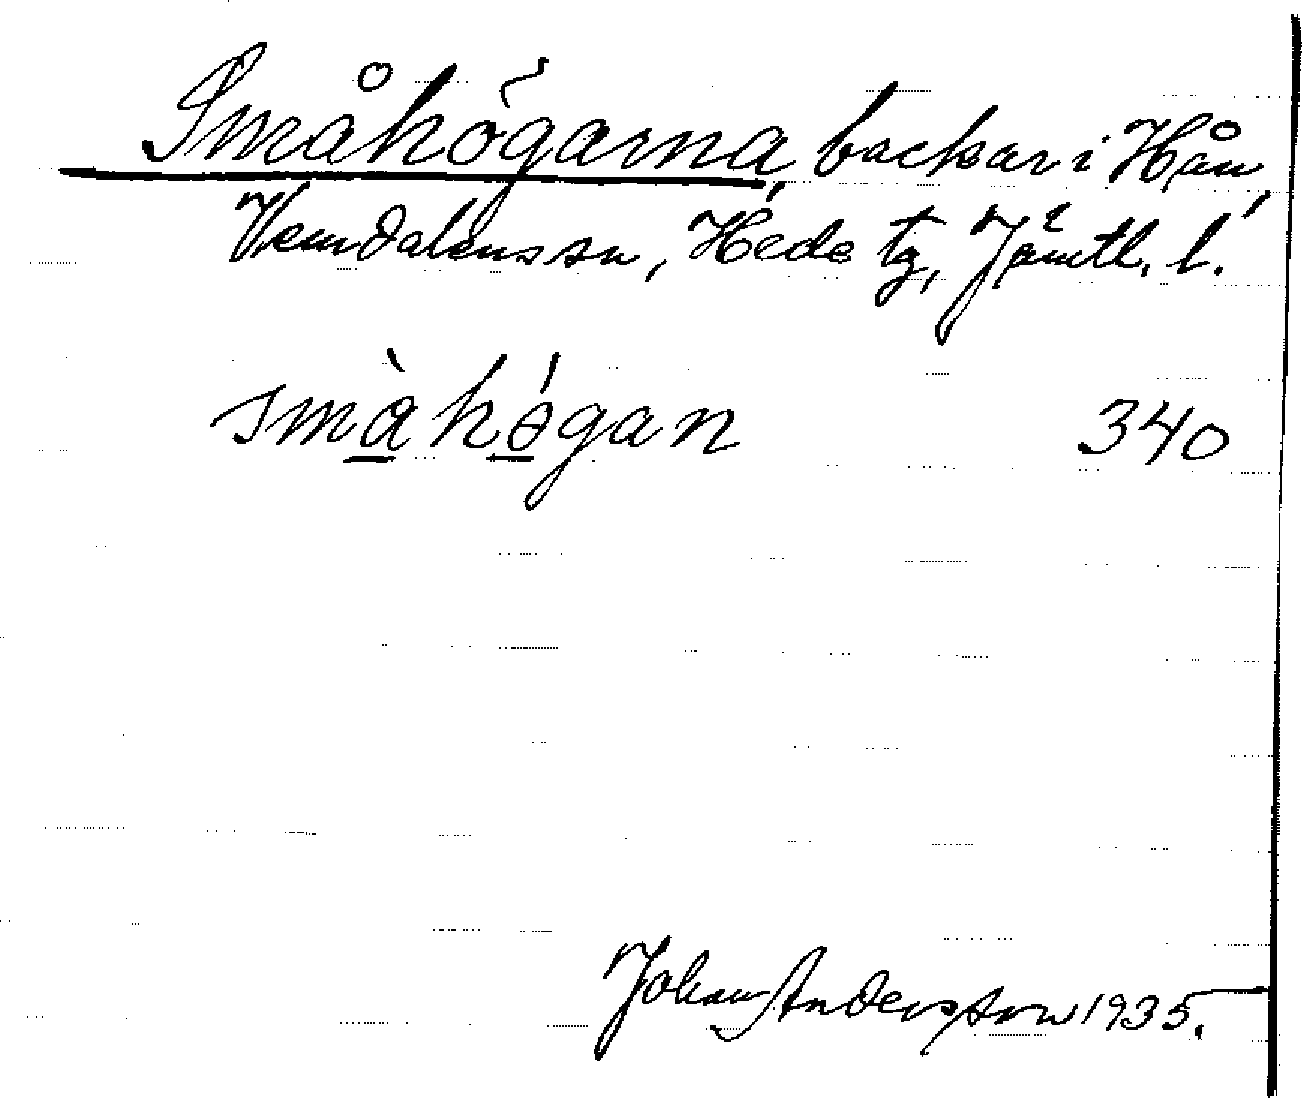 Småhögarna, backar i Hån,
Vemdalens sn, Hede tg, Jämtl. l.
smàhǿgan 340
Johan Andersson 1935.